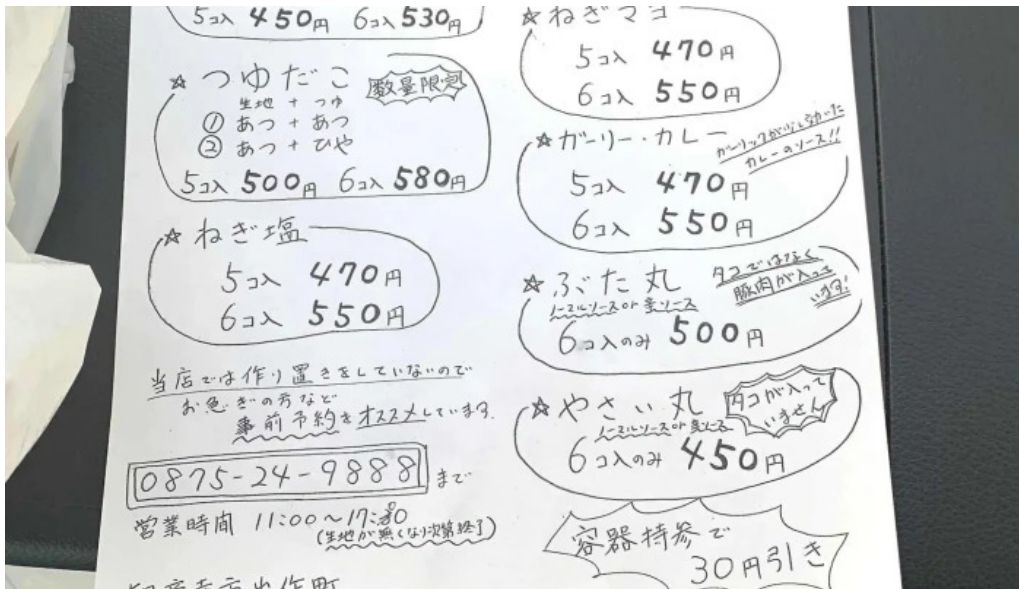 5コ入 450円 6コ入 530円
☆つゆだこ 数量限定
生地 + つゆ
① あつ + あつ
② あつ + ひや
5コ入 500円 6コ入 580円
☆ねぎ塩
5コ入 470円
6コ入 550円
当店では作り置きをしていないので
お急ぎの方など
事前予約をオススメしています。
0875-24-9888 まで
営業時間 11:00〜17:30
(生地が無くなり次第終了)
☆ねぎマヨ
5コ入 470円
6コ入 550円
☆ガーリー・カレー
ガーリックが少し効いた
カレーのソース!!
5コ入 470円
6コ入 550円
☆ぶた丸
タコではなく
豚肉が入って
います!
ノーマルソース or 黒ソース
6コ入のみ 500円
☆やさい丸
タコが入って
いません
ノーマルソース or 黒ソース
6コ入のみ 450円
容器持参で
30円引き